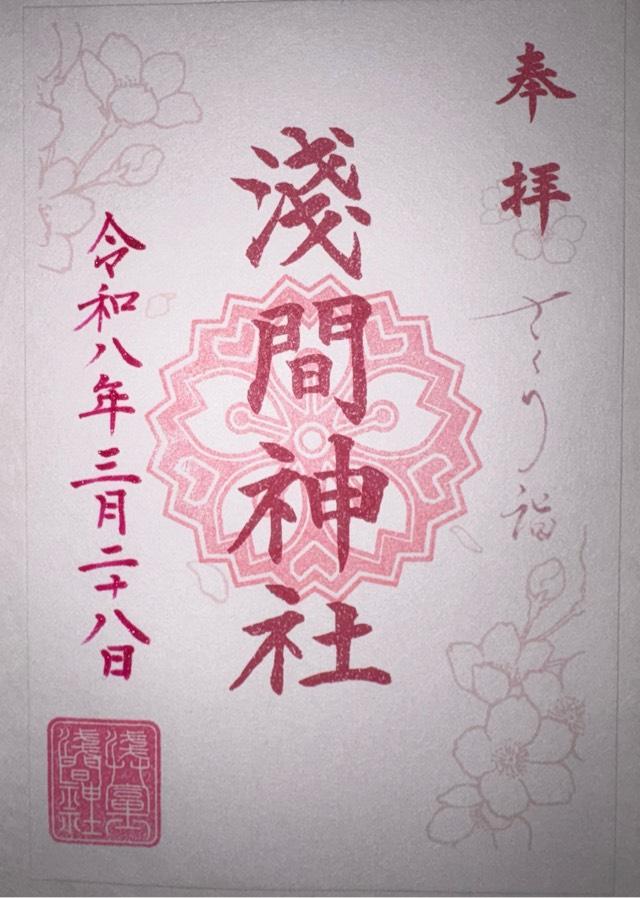 奉拝
さくり詣
淺間神社
令和八年三月二十八日
淺間神社